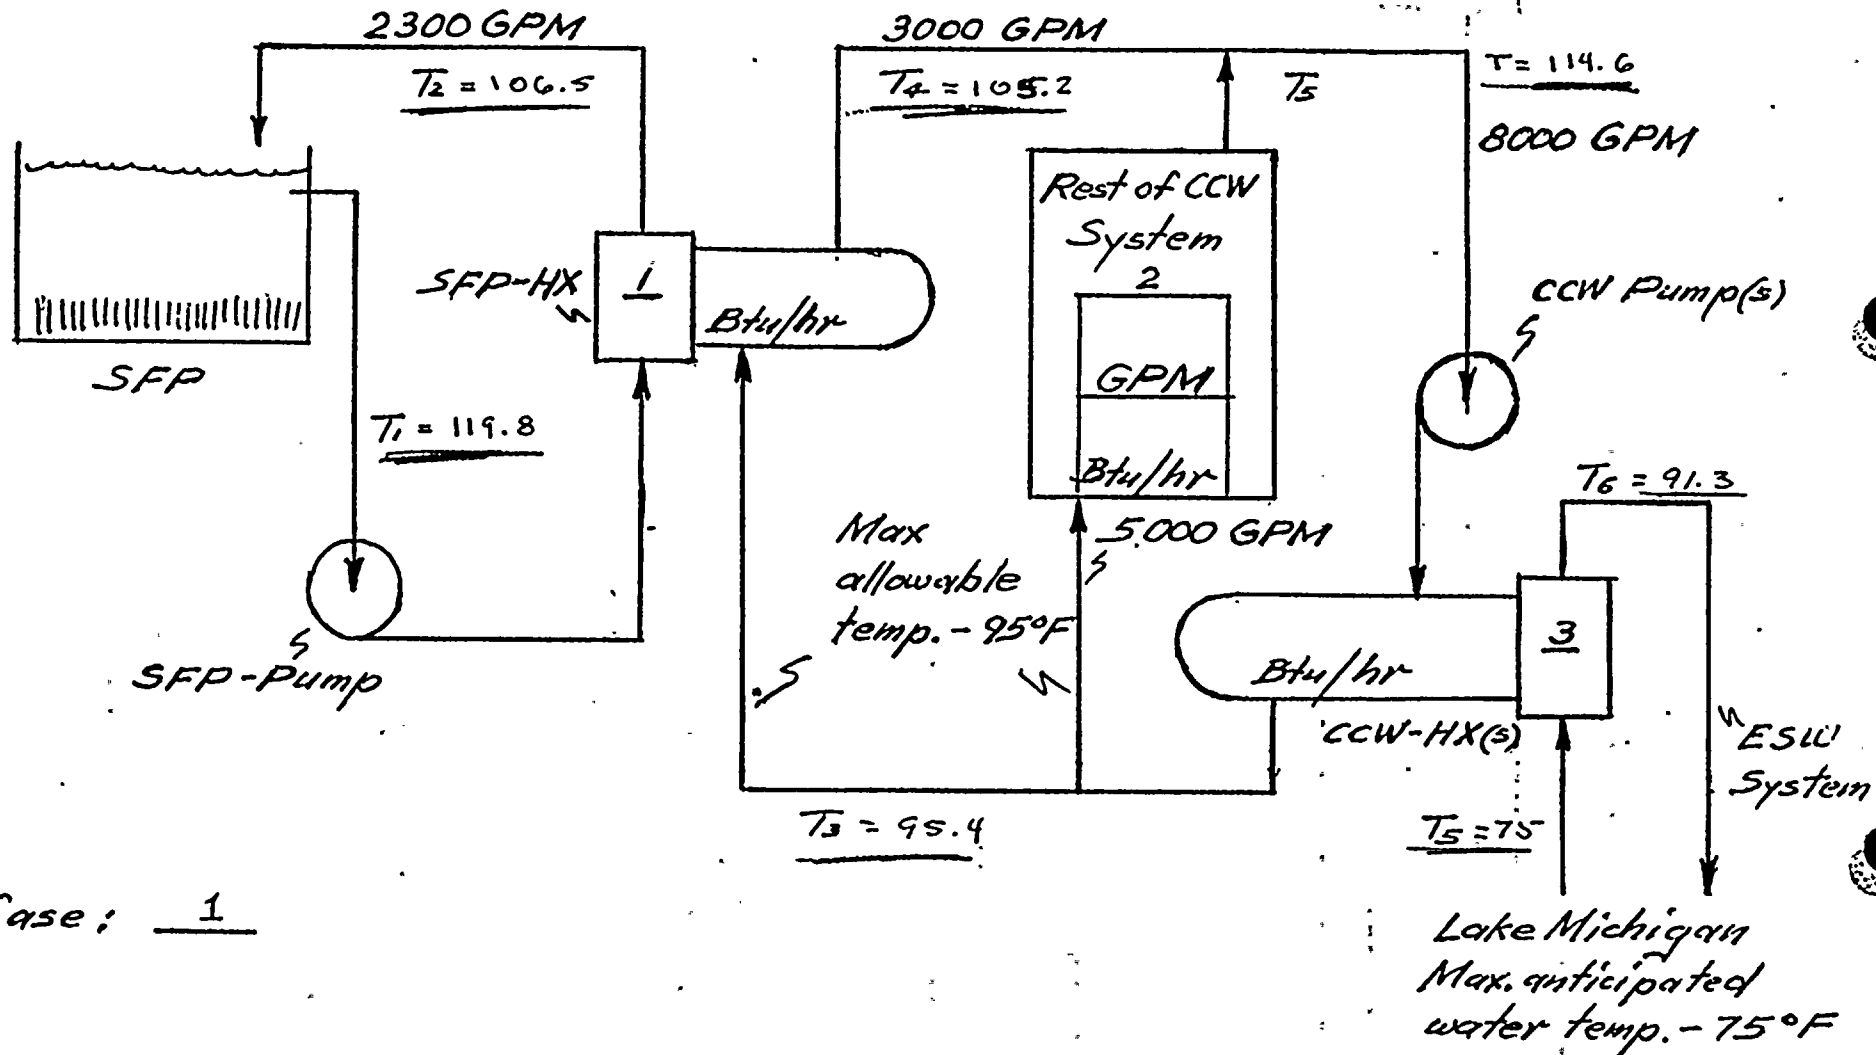 2300 GPM
T2 = 106.5
3000 GPM
T4 = 105.2
T5
T = 114.6
8000 GPM
Rest of CCW
System
2
GPM
Btu/hr
SFP-HX
1
Btu/hr
CCW Pump(s)
SFP
T1 = 119.8
T6 = 91.3
Max
allowable
temp. - 95°F
5000 GPM
SFP-Pump
3
Btu/hr
CCW-HX(s)
ESW
System
T3 = 95.4
T5 = 75
ase: 1
Lake Michigan
Max. anticipated
water temp. - 75°F